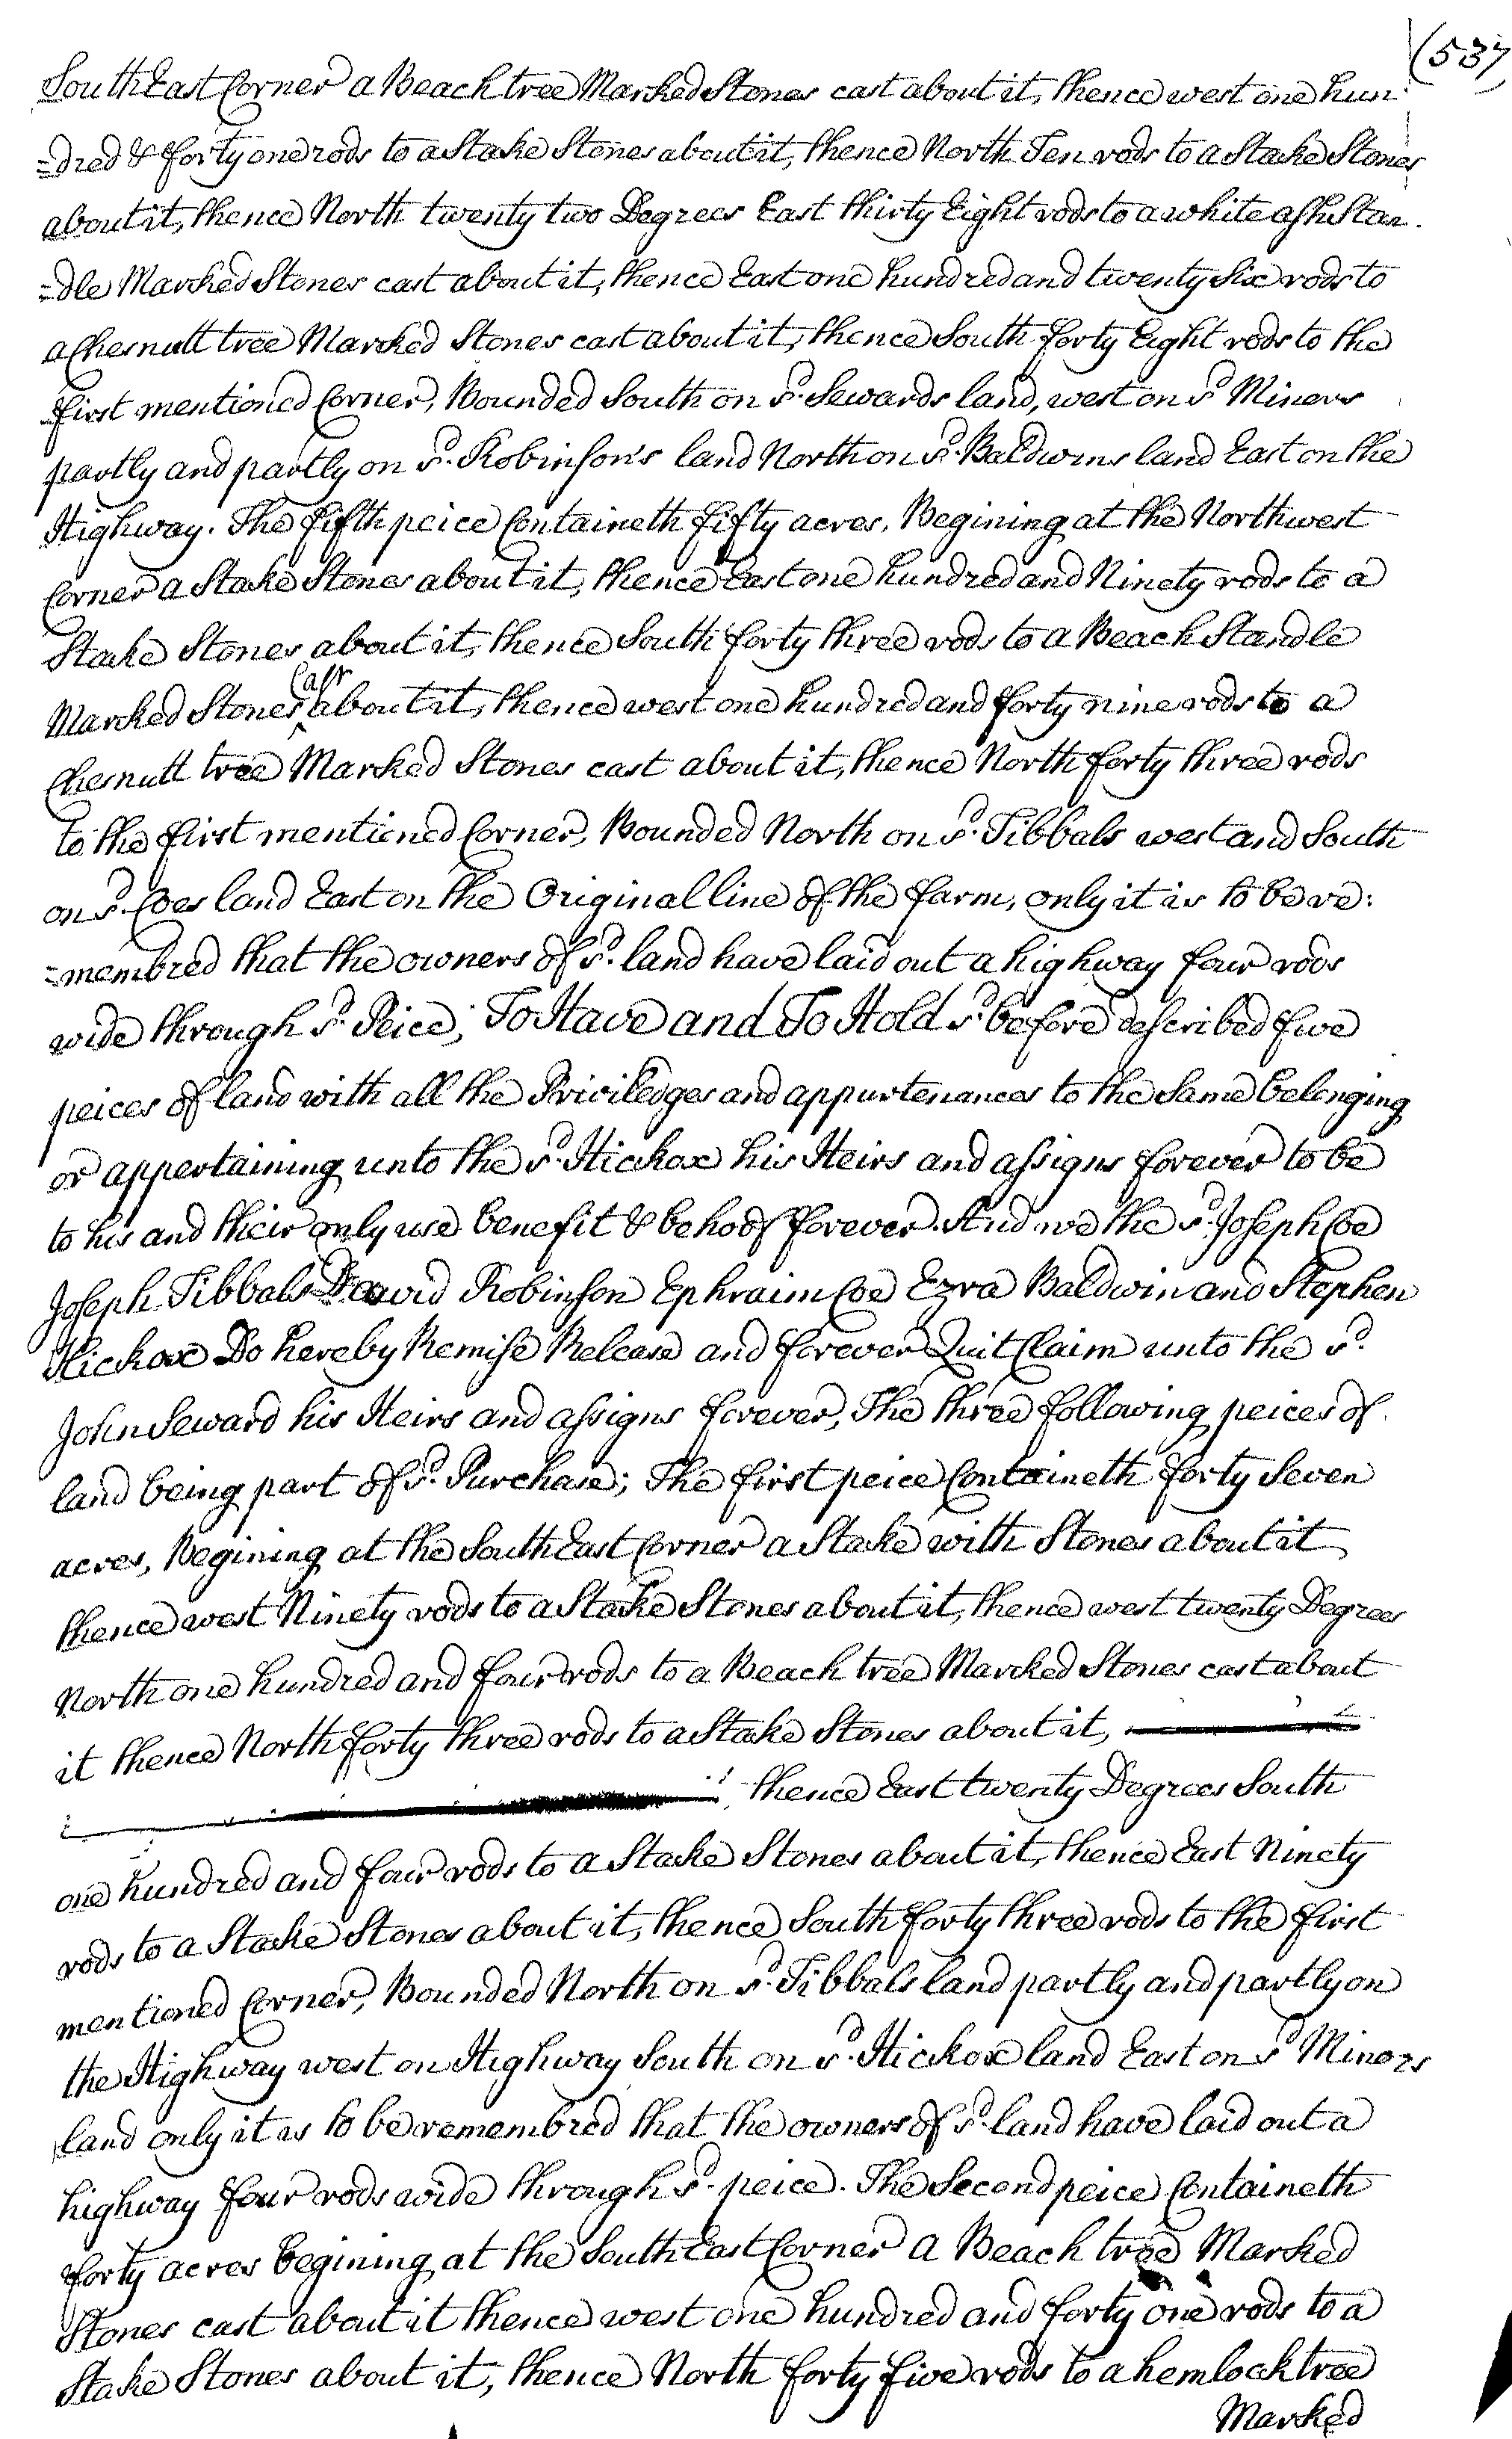 (537
South East Corner a Beach tree Marked Stones cast about it, thence west one hun
=dred & forty one rods to a Stake Stones about it, thence North Ten rods to a Stake Stones
about it, thence North twenty two Degrees East thirty Eight rods to a white ash Stan
=dle Marked Stones cast about it, thence East one hundred and twenty six rods to
a Chesnutt tree Marked Stones cast about it, thence South forty Eight rods to the
first mentioned Corner, Bounded South on sd. Sewards land, west on sd Miners
partly and partly on sd. Robinson's land North on sd. Baldwins land East on the
Highway. The fifth peice Containeth fifty acres, Begining at the Northwest
Corner a Stake Stones about it, thence East one hundred and Ninety rods to a
Stake Stones about it, thence South forty three rods to a Beach Standle
Marked Stones cast about it, thence west one hundred and forty nine rods to a
Chesnutt tree Marked Stones cast about it, thence North forty three rods
to the first mentioned Corner, Bounded North on sd. Tibbals west and South
on sd. Coes land East on the Original line of the farm, only it is to be re:
=membred that the owners of sd. land have laid out a highway four rods
wide through sd. Peice; To Have and To Hold sd before described five
peices of land with all the Priviledges and appurtenances to the same belonging
or appertaining unto the sd. Hickox his Heirs and assigns forever to be
to his and their only use benefit & behoof forever. And we the sd. Joseph Coe
Joseph Tibbals David Robinson Ephraim Coe Ezra Baldwin and Stephen
Hickox Do hereby Remise Release and forever Quit Claim unto the sd.
John Seward his Heirs and assigns forever, The three following peices of
land being part of sd. Purchase; The first peice Containeth forty Seven
acres, Begining at the South East Corner a Stake with Stones about it
thence west Ninety rods to a Stake Stones about it, thence west twenty Degrees
North one hundred and four rods to a Beach tree Marked Stones cast about
it thence North forty three rods to a Stake Stones about it,
thence East twenty Degrees South
one hundred and four rods to a Stake Stones about it, thence East Ninety
rods to a Stake Stones about it, thence South forty three rods to the first
mentioned Corner, Bounded North on sd. Tibbals land partly and partly on
the Highway west on Highway South on sd. Hickox land East on sd Minors
land only it is to be remembred that the owners of sd. land have laid out a
highway four rods wide through sd. peice. The Second peice Containeth
forty acres begining at the South East Corner a Beach tree Marked
Stones cast about it thence west one hundred and forty one rods to a
Stake Stones about it, thence North forty five rods to a hemlock tree
Marked